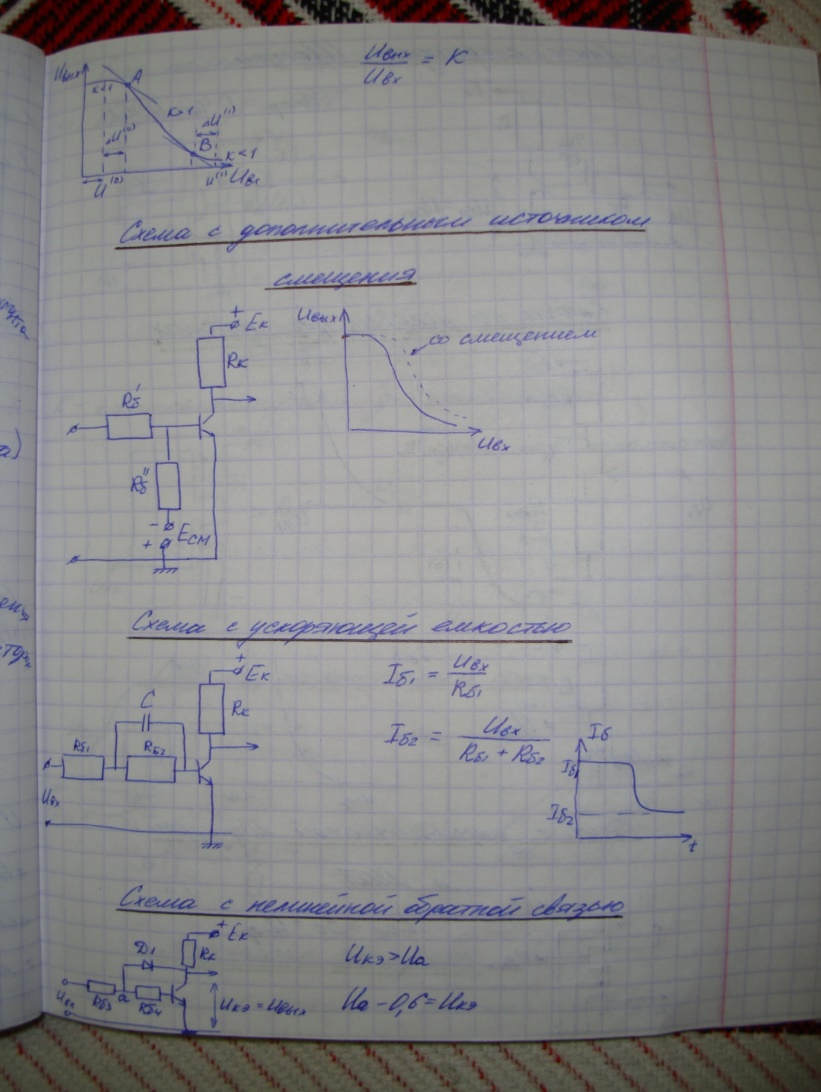 Uвых
Uвх = K
Uвых
A
K<1
K>1
ΔU⁽⁰⁾
ΔU⁽¹⁾
B
K<1
U⁽⁰⁾
U⁽¹⁾
Uвх
Схема с дополнительным источником
смещения
+
Eк
Rк
Rб'
Rб''
-
+
Eсм
Uвых
со смещением
Uвх
Схема с ускоряющей емкостью
+
Eк
Rк
C
Rб1
Rб2
Uвх
Iб1 = Uвх / Rб1
Iб2 = Uвх / Rб1 + Rб2
Iб
Iб1
Iб2
t
Схема с нелинейной обратной связью
+
Eк
Rк
D1
Uвх
Rб3
a
Rб4
Uкэ = Uвых
Uкэ > Uа
Uа - 0,6 = Uкэ